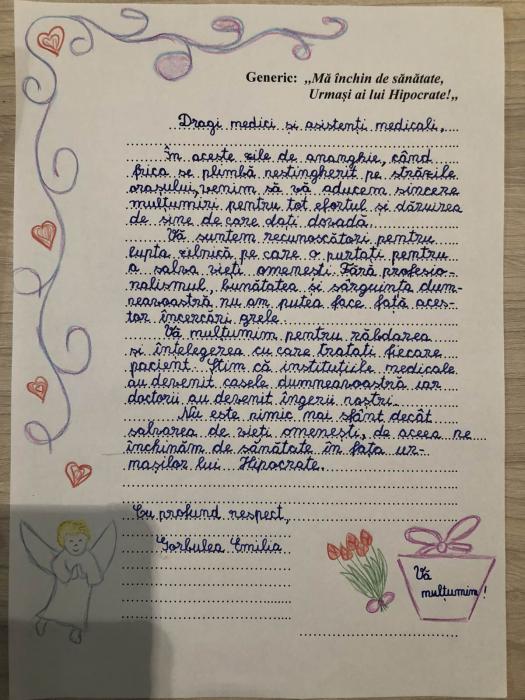 Generic: „Mă închin de sănătate,
Urmași ai lui Hipocrate!„
Dragi medici și asistenți medicali,
În aceste zile de ananghie, când
frica se plimbă nestingherit pe străzile
orașului, venim să vă aducem sincere
mulțumiri pentru tot efortul și dăruirea
de sine de care dați dovadă.
Vă suntem recunoscători pentru
lupta zilnică pe care o purtați pentru
a salva vieți omenești. Fără profesio-
nalismul, bunătatea și sârguința dum-
neavoastră nu am putea face față aces-
tor încercări grele.
Vă mulțumim pentru răbdarea
și înțelegerea cu care tratați fiecare
pacient. Știm că instituțiile medicale
au devenit casele dumneavoastră iar
doctorii au devenit îngerii noștri.
Nu este nimic mai sfânt decât
salvarea de vieți omenești, de aceea ne
închinăm de sănătate în fața ur-
mașilor lui Hipocrate.
Cu profund respect,
Gorbulea Emilia
Vă
mulțumim!